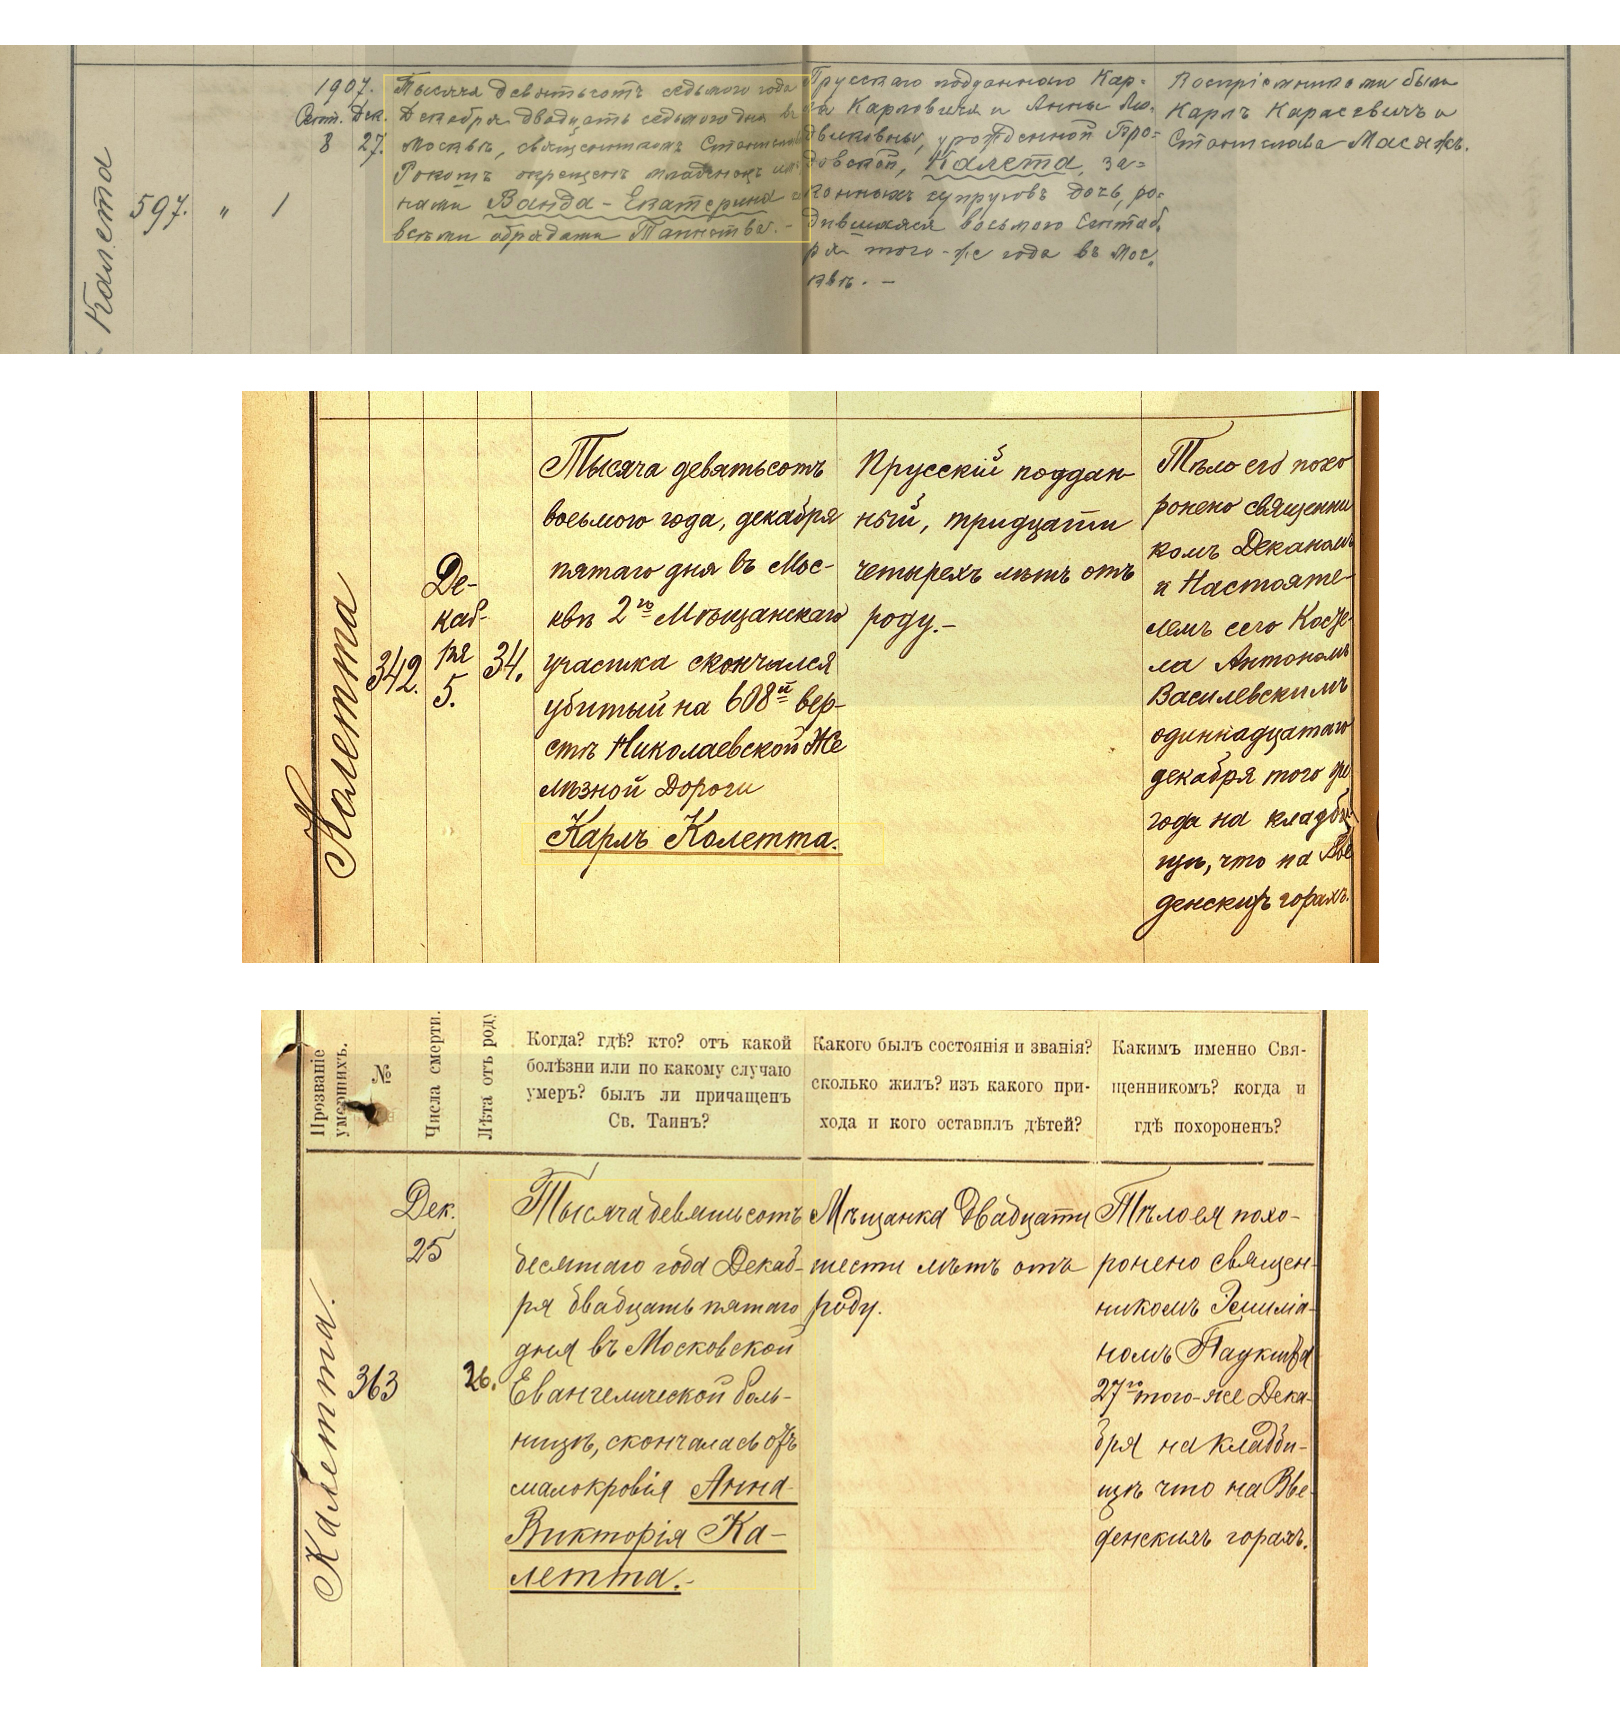 Калета
597.
"
1
1907.
Сент. Дек.
8 27.
Тысяча девятьсотъ седьмого года
Декабря двадцать седьмого дня въ
Москвѣ, священникомъ
окрещенъ младенецъ
нами Ванда-Екатерина
всѣми обрядами Таинства.-
Прусскаго подданнаго Кар-
ла Карловича и Анны Лю-
двиковны, урожденной
Калета, за-
конныхъ супруговъ дочь, ро-
дившаяся восьмого Сентяб.
ря того-же года въ Мос.
квѣ. -
Воспріемниками были
Карлъ Карасевичъ и
Станислава
Колетта
342.
Де-
каб-
ря
5.
34.
Тысяча девятьсотъ
восьмого года, декабря
пятаго дня въ Мос-
квѣ 2го Мѣщанскаго
участка скончался
убитый на 608й вер-
стѣ Николаевской Же
лѣзной Дороги
Карлъ Колетта.
Прусскій поддан-
ный, тридцати
четырехъ лѣтъ отъ
роду.-
Тѣло его похо
ронено священни
комъ Деканомъ
и Настояте-
лемъ сего Косте-
ла Антономъ
Василевскимъ
одиннадцатаго
декабря того же
года на кладби-
щѣ, что на Вве
денскихъ горахъ.
Прозваніе
умершихъ.
№
Числа смерти.
Лѣта отъ роду
Когда? гдѣ? кто? отъ какой
болѣзни или по какому случаю
умеръ? былъ ли причащенъ
Св. Таинъ?
Какого былъ состоянія и званія?
сколько жилъ? изъ какого при-
хода и кого оставилъ дѣтей?
Какимъ именно Свя-
щенникомъ? когда и
гдѣ похороненъ?
Калетта.
363
Дек.
25
26.
Тысяча девятьсотъ
десятаго года Декаб-
ря двадцать пятаго
дня въ Московской
Евангелической боль-
ницѣ, скончалась отъ
малокровія Анна-
Викторія Ка-
летта.-
Мѣщанка двадцати
шести лѣтъ отъ
роду.
Тѣло ея похо-
ронено священ-
никомъ Эмиліа-
номъ
27го того-же Дека-
бря на кладби-
щѣ что на Вве-
денскихъ горахъ.